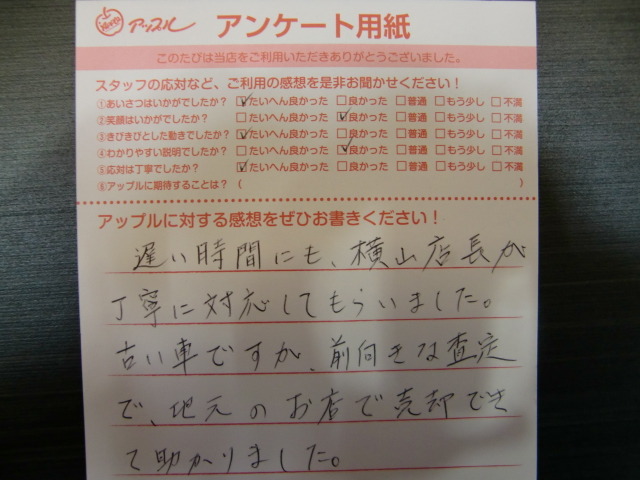 アップル アンケート用紙
このたびは当店をご利用いただきありがとうございました。
スタッフの応対など、ご利用の感想を是非お聞かせください！
①あいさつはいかがでしたか？ ☑たいへん良かった □良かった □普通 □もう少し □不満
②笑顔はいかがでしたか？ □たいへん良かった ☑良かった □普通 □もう少し □不満
③きびきびとした動きでしたか？ ☑たいへん良かった □良かった □普通 □もう少し □不満
④わかりやすい説明でしたか？ □たいへん良かった ☑良かった □普通 □もう少し □不満
⑤応対は丁寧でしたか？ ☑たいへん良かった □良かった □普通 □もう少し □不満
⑥アップルに期待することは？（ ）
アップルに対する感想をぜひお書きください！
遅い時間にも、横山店長が
丁寧に対応してもらいました。
古い車ですが、前向きな査定
で、地元のお店で売却でき
て助かりました。